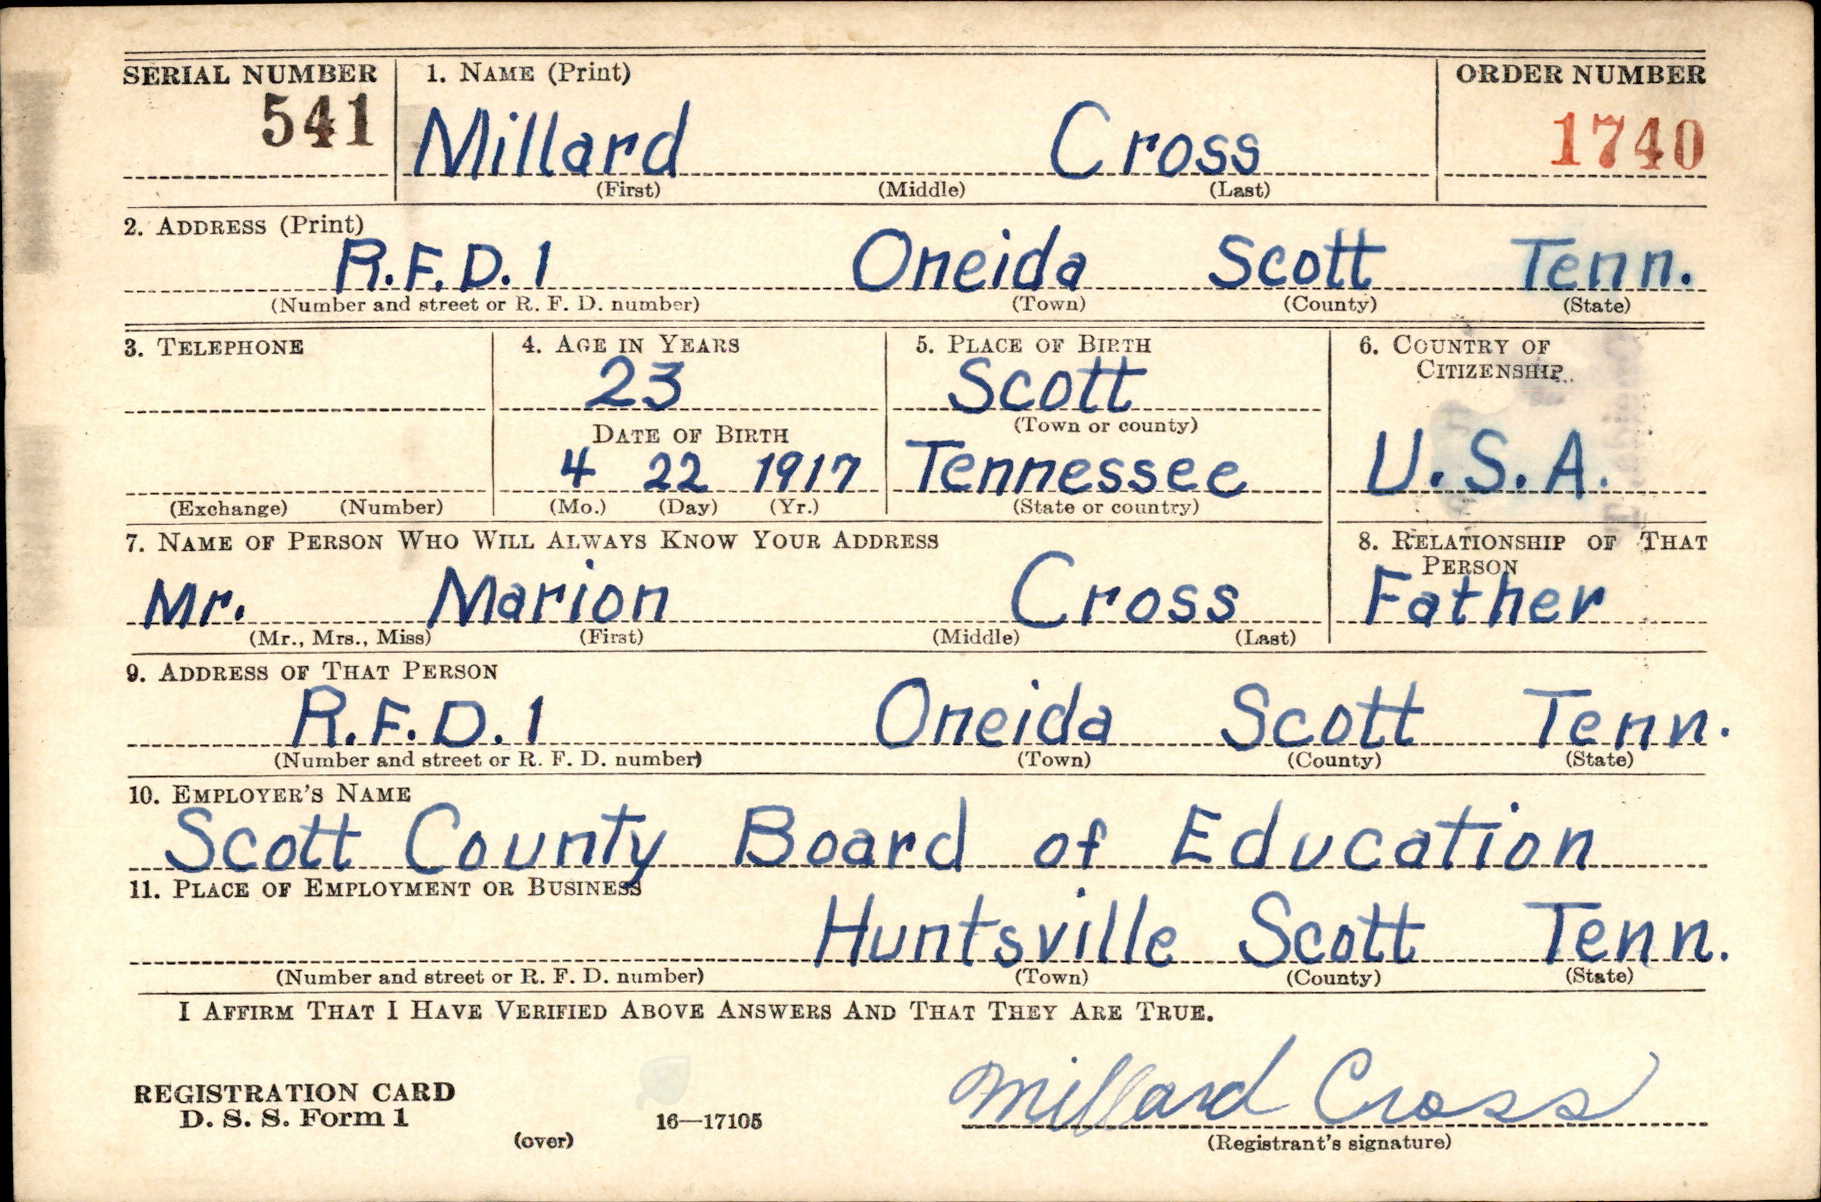 SERIAL NUMBER 1. NAME (Print) ORDER NUMBER
541 Millard Cross 1740
(First) (Middle) (Last)
2. ADDRESS (Print)
R.F.D. 1 Oneida Scott Tenn.
(Number and street or R. F. D. number) (Town) (County) (State)
3. TELEPHONE 4. AGE IN YEARS 5. PLACE OF BIRTH 6. COUNTRY OF
CITIZENSHIP
23 Scott
(Town or county)
DATE OF BIRTH
4 22 1917 Tennessee U.S.A.
(Exchange) (Number) (Mo.) (Day) (Yr.) (State or country)
7. NAME OF PERSON WHO WILL ALWAYS KNOW YOUR ADDRESS 8. RELATIONSHIP OF THAT
PERSON
Mr. Marion Cross Father
(Mr., Mrs., Miss) (First) (Middle) (Last)
9. ADDRESS OF THAT PERSON
R.F.D. 1 Oneida Scott Tenn.
(Number and street or R. F. D. number) (Town) (County) (State)
10. EMPLOYER'S NAME
Scott County Board of Education
11. PLACE OF EMPLOYMENT OR BUSINESS
Huntsville Scott Tenn.
(Number and street or R. F. D. number) (Town) (County) (State)
I AFFIRM THAT I HAVE VERIFIED ABOVE ANSWERS AND THAT THEY ARE TRUE.
Millard Cross
REGISTRATION CARD
D. S. S. Form 1 16—17105
(over) (Registrant's signature)